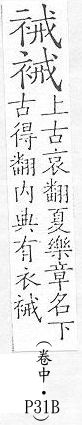 祴裓
上古哀翻夏樂章名下
古得翻內典有衣裓
(卷中・P31B)